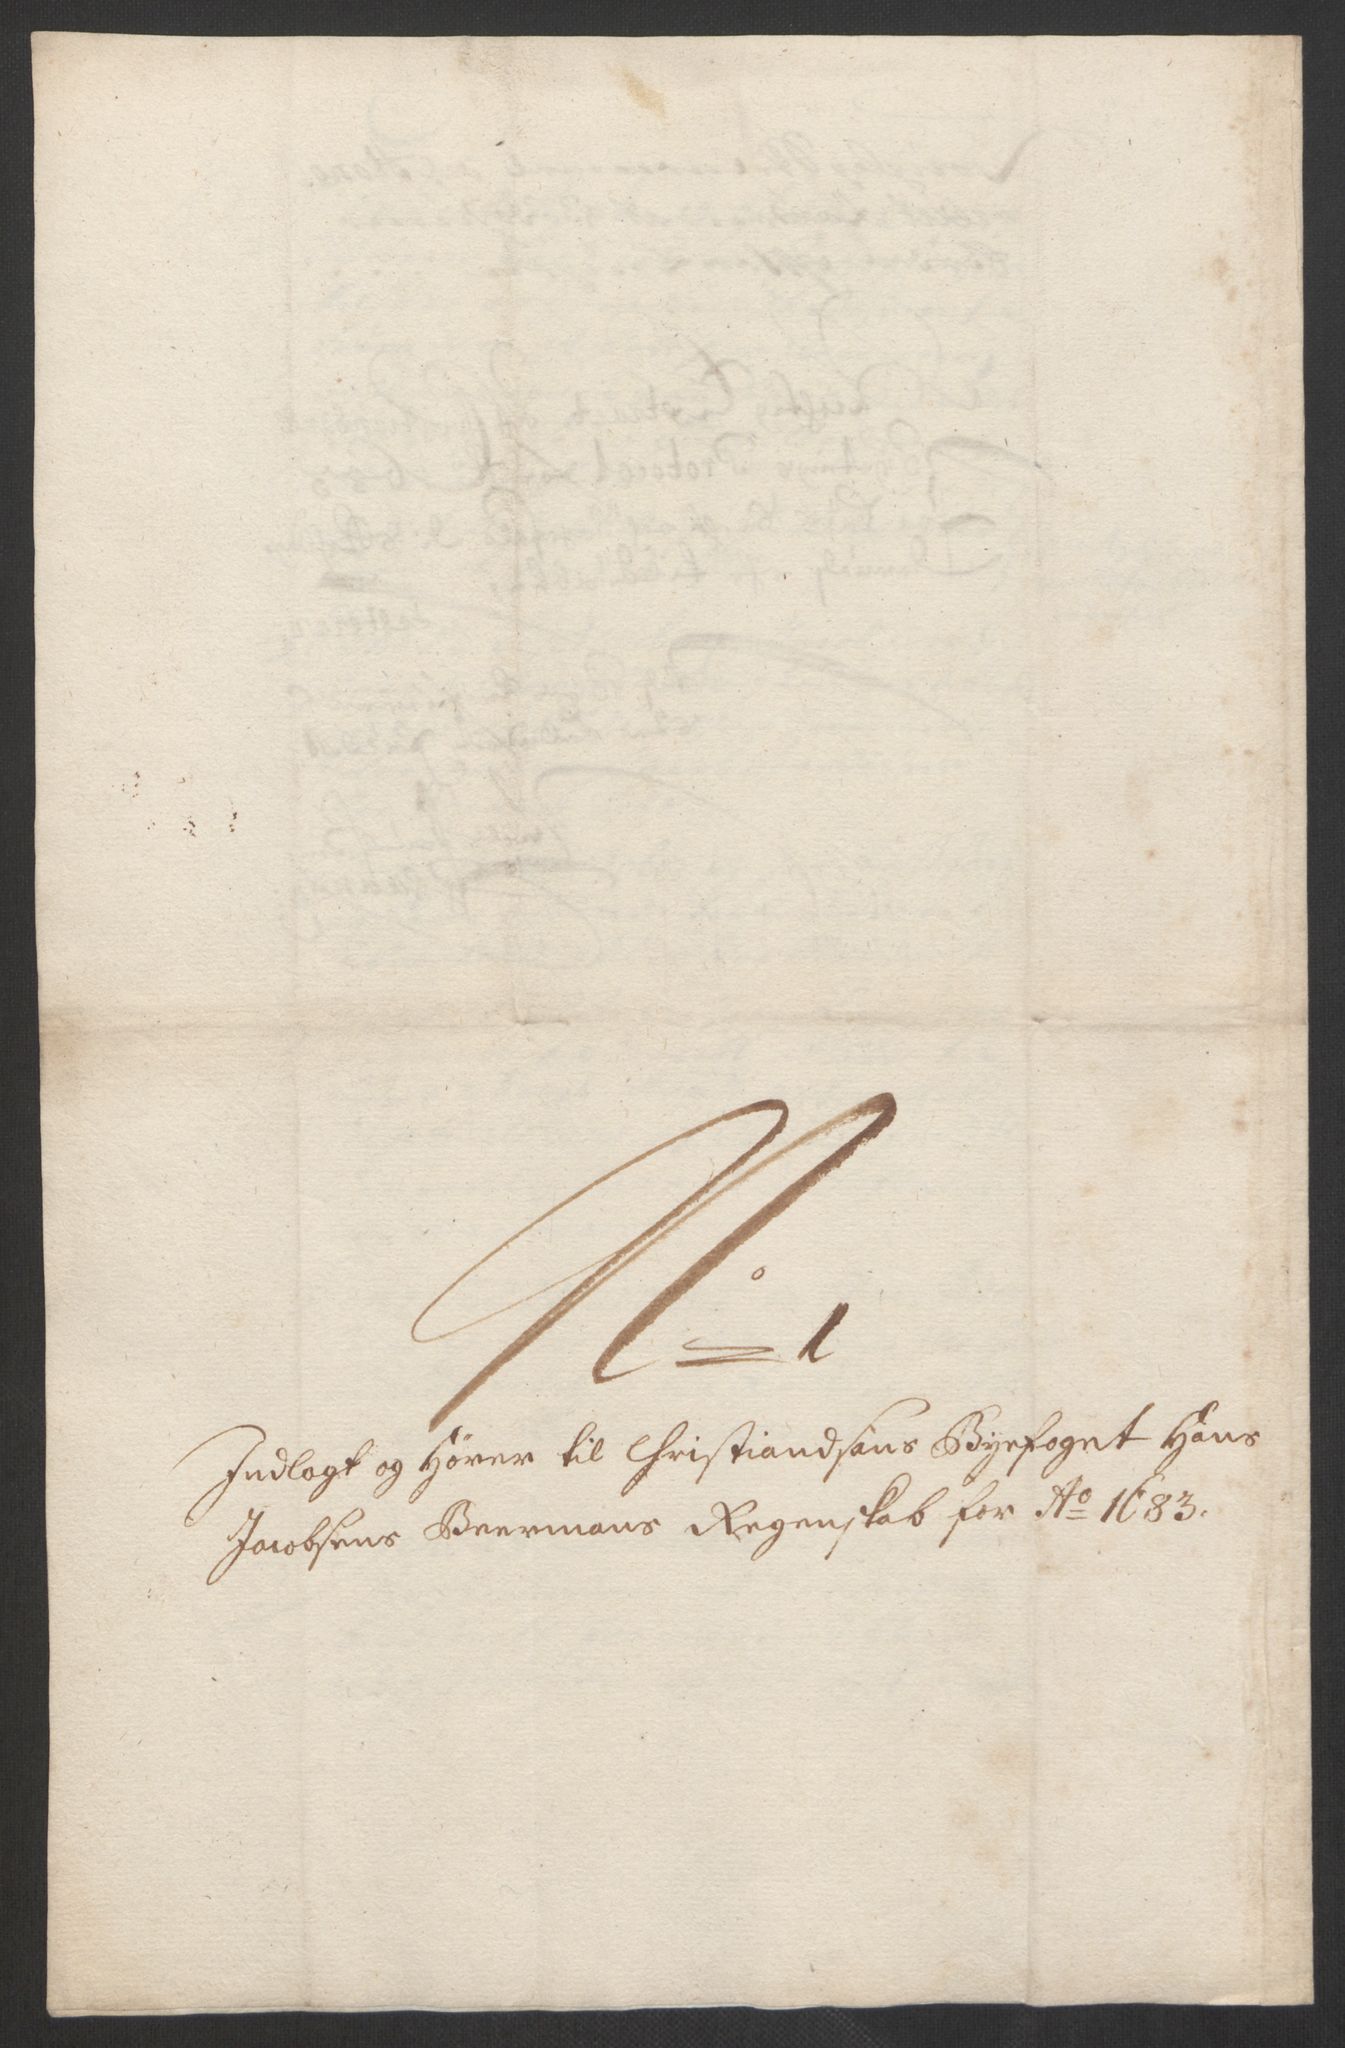 No 1
Indlagt og Hörer til Christiandsans Byefoget Hans
Jacobsens Beermans Regenskab for Ao 1683.